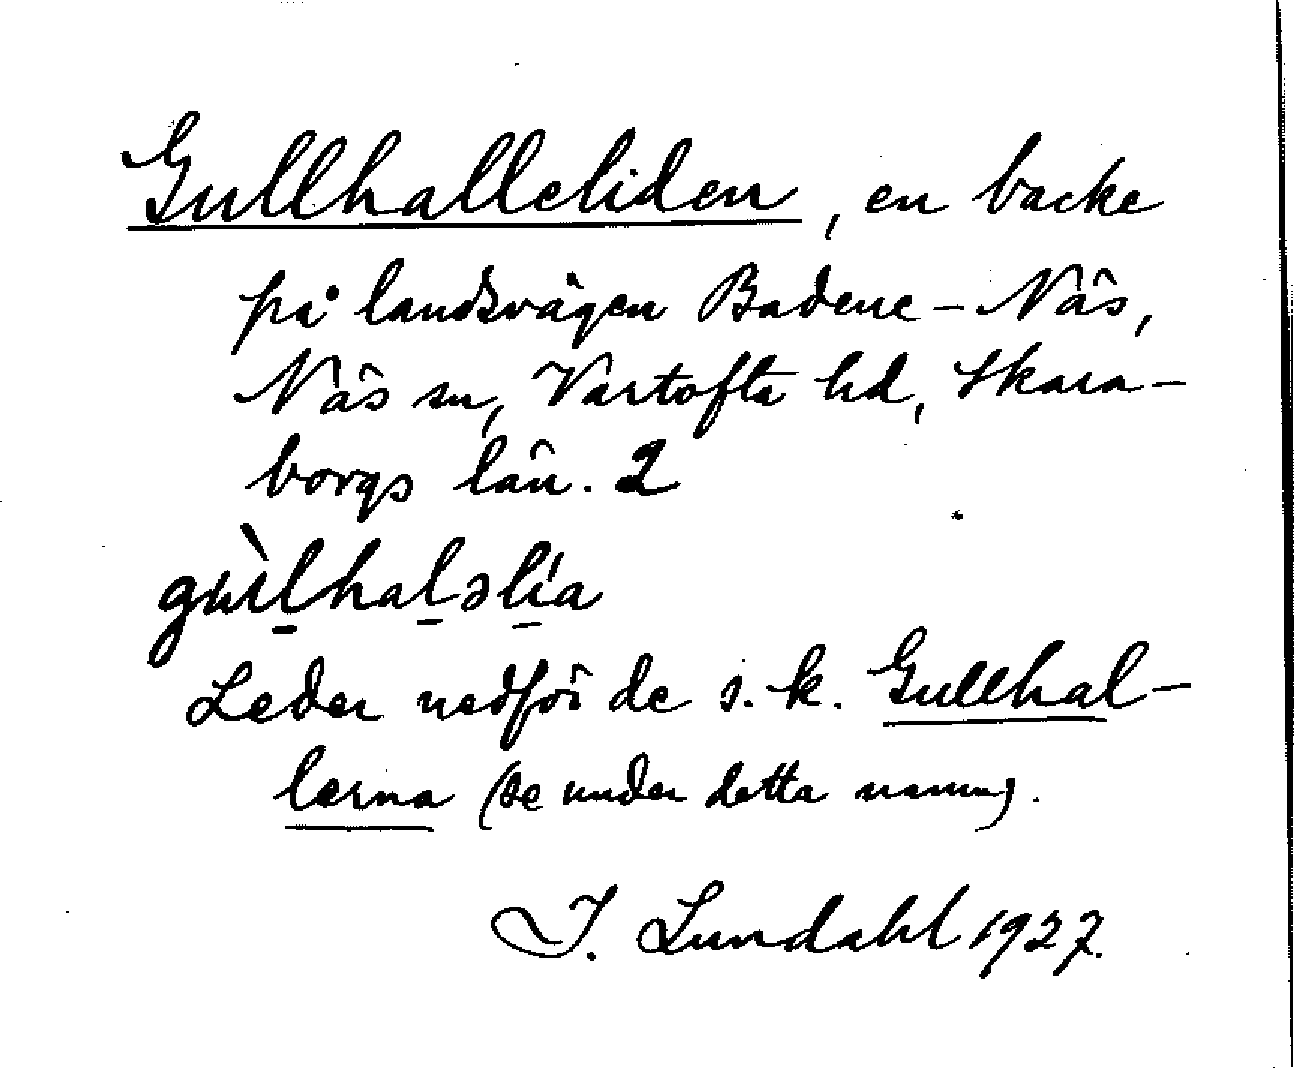 Gullhalleliden, en backe
på landsvägen Badene - Näs,
Näs sn, Vartofta hd, Skara-
borgs län. 2
gùlhaləlía
Leder nedför de s. k. Gullhal-
lerna (se under detta namn).
I. Lundahl 1927.